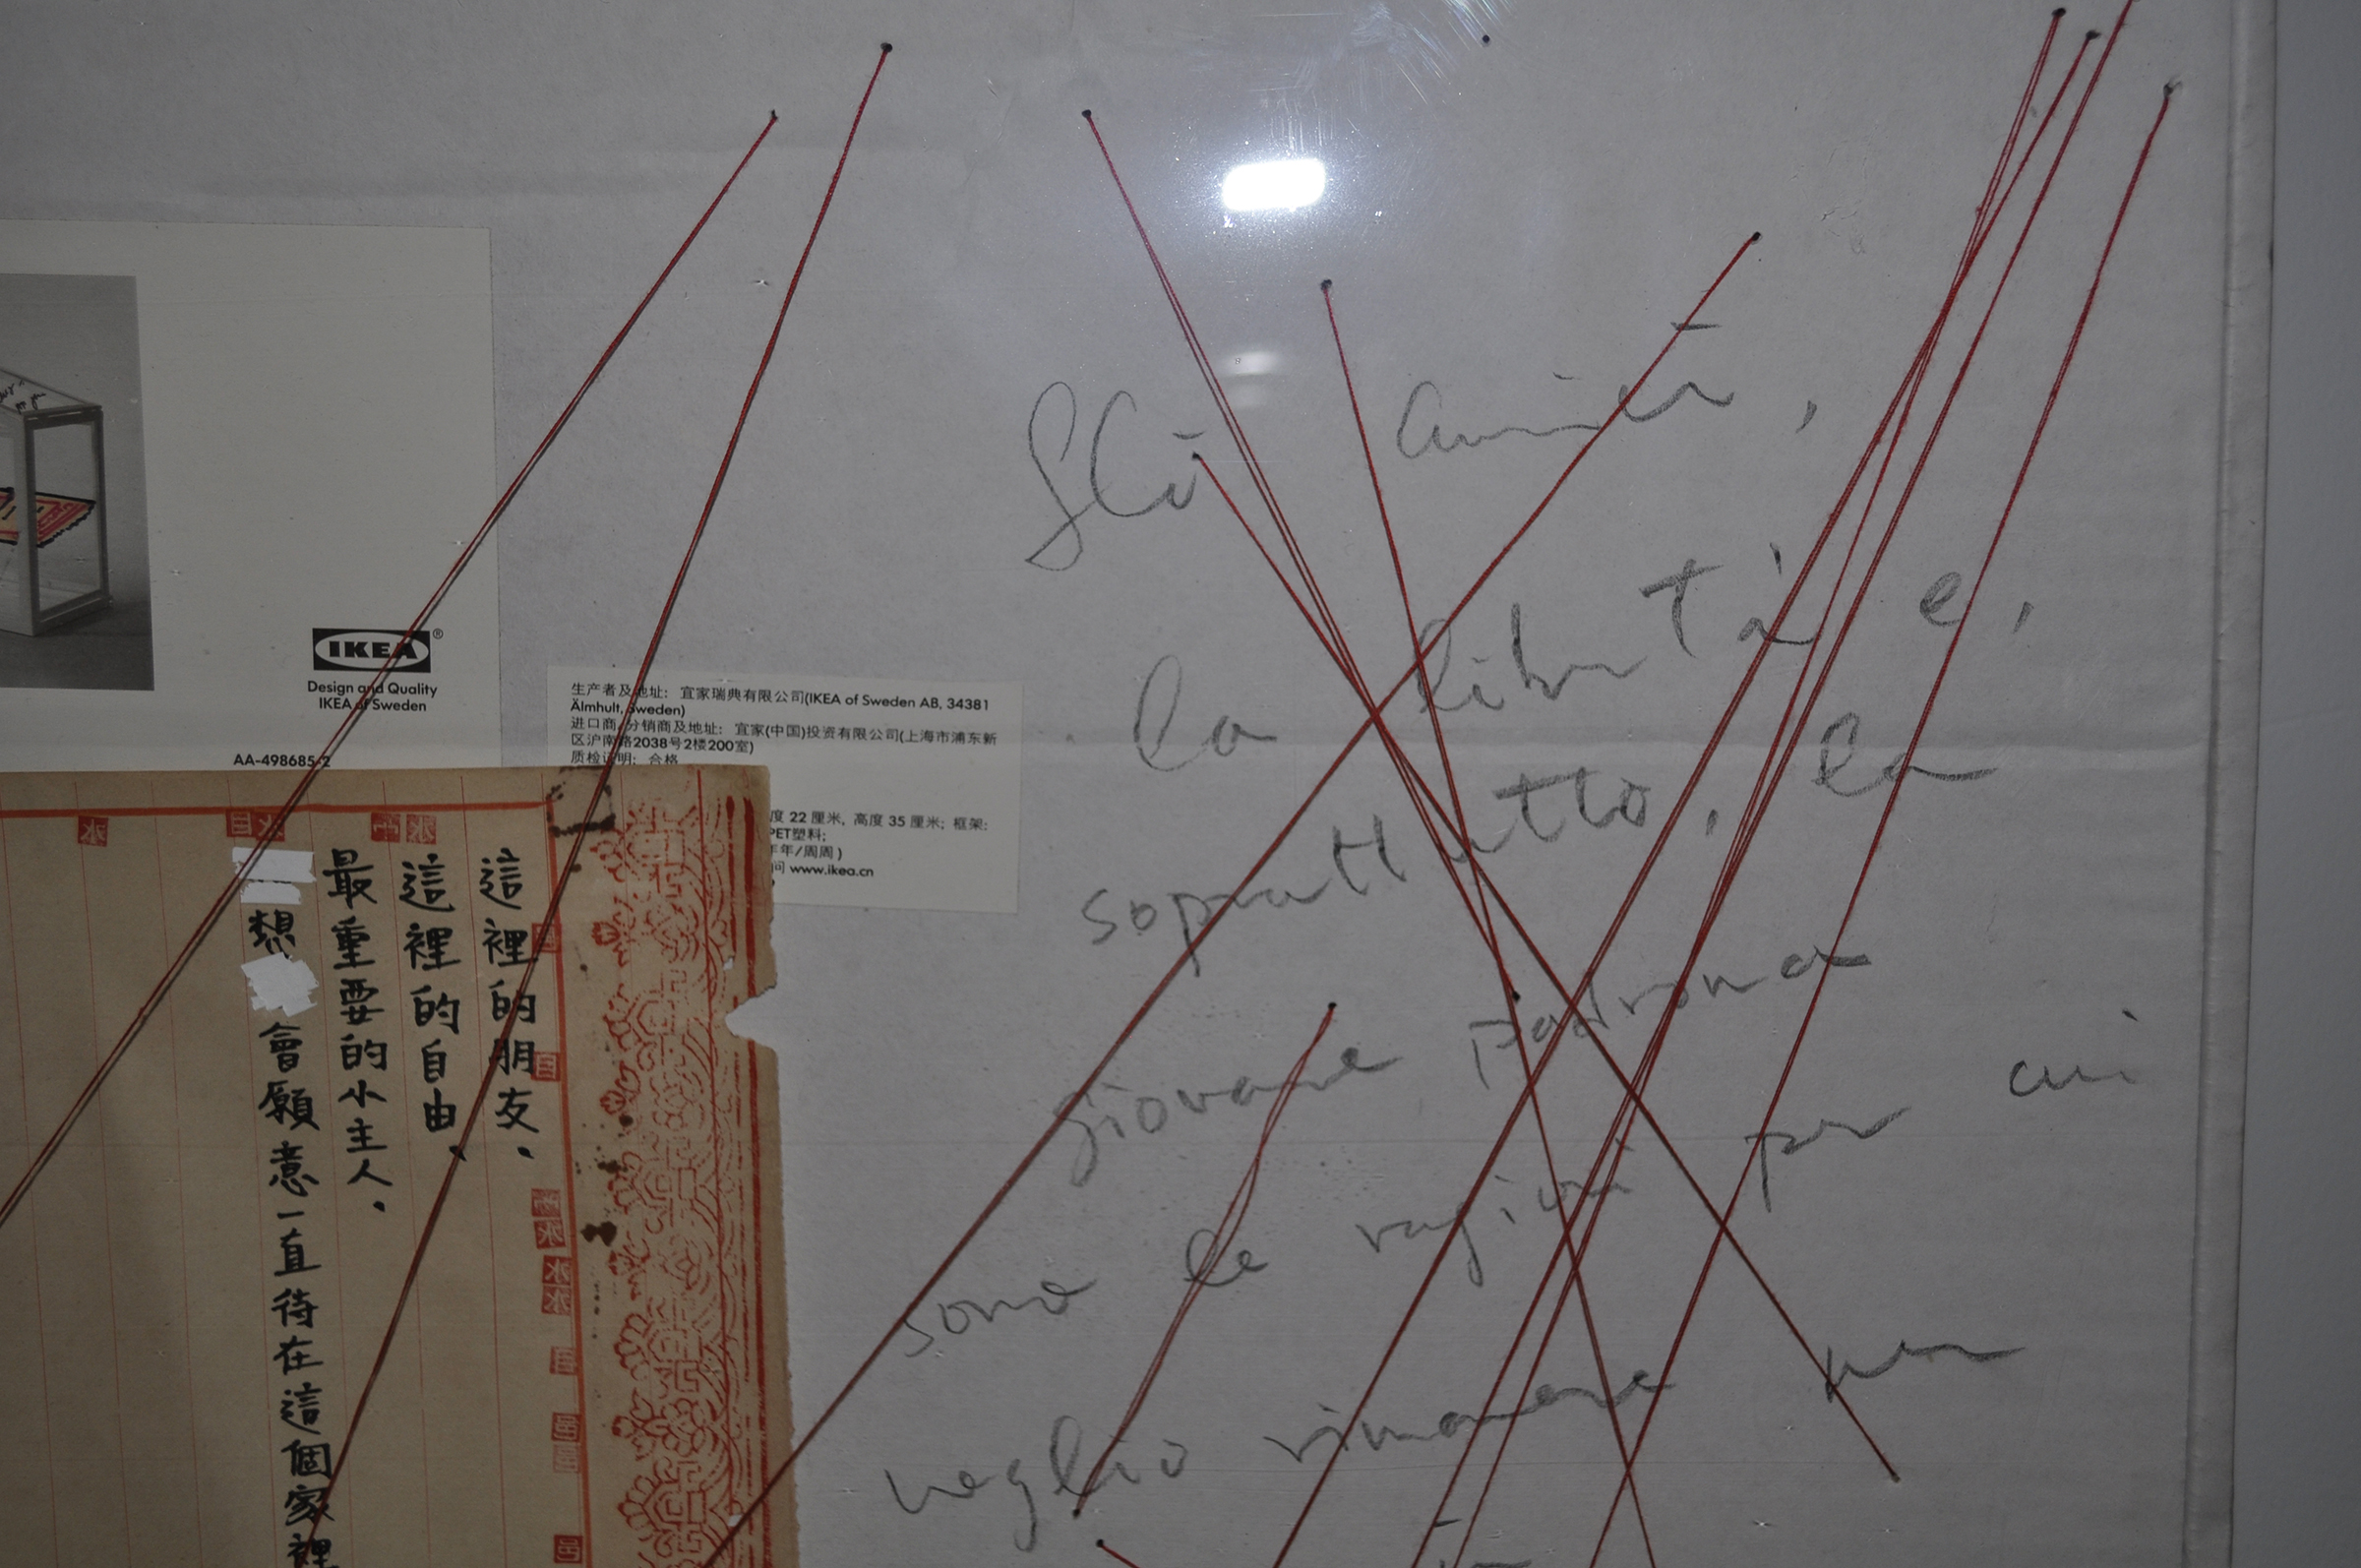 IKEA®
Design and Quality
IKEA of Sweden
AA-498685-2
生产者及地址: 宜家瑞典有限公司(IKEA of Sweden AB, 34381
Älmhult, Sweden)
进口商/分销商及地址: 宜家(中国)投资有限公司(上海市浦东新
区沪南路2038号2楼200室)
质检证明: 合格
度 22 厘米, 高度 35 厘米; 框架:
PET塑料;
年年/周周)
问 www.ikea.cn
這裡的朋友、
這裡的自由、
最重要的小主人。
想 會願意一直待在這個家裡
Gli amici,
la libertà e,
soprattutto, la
giovane padrona
sono le ragioni per cui
voglio rimanere per